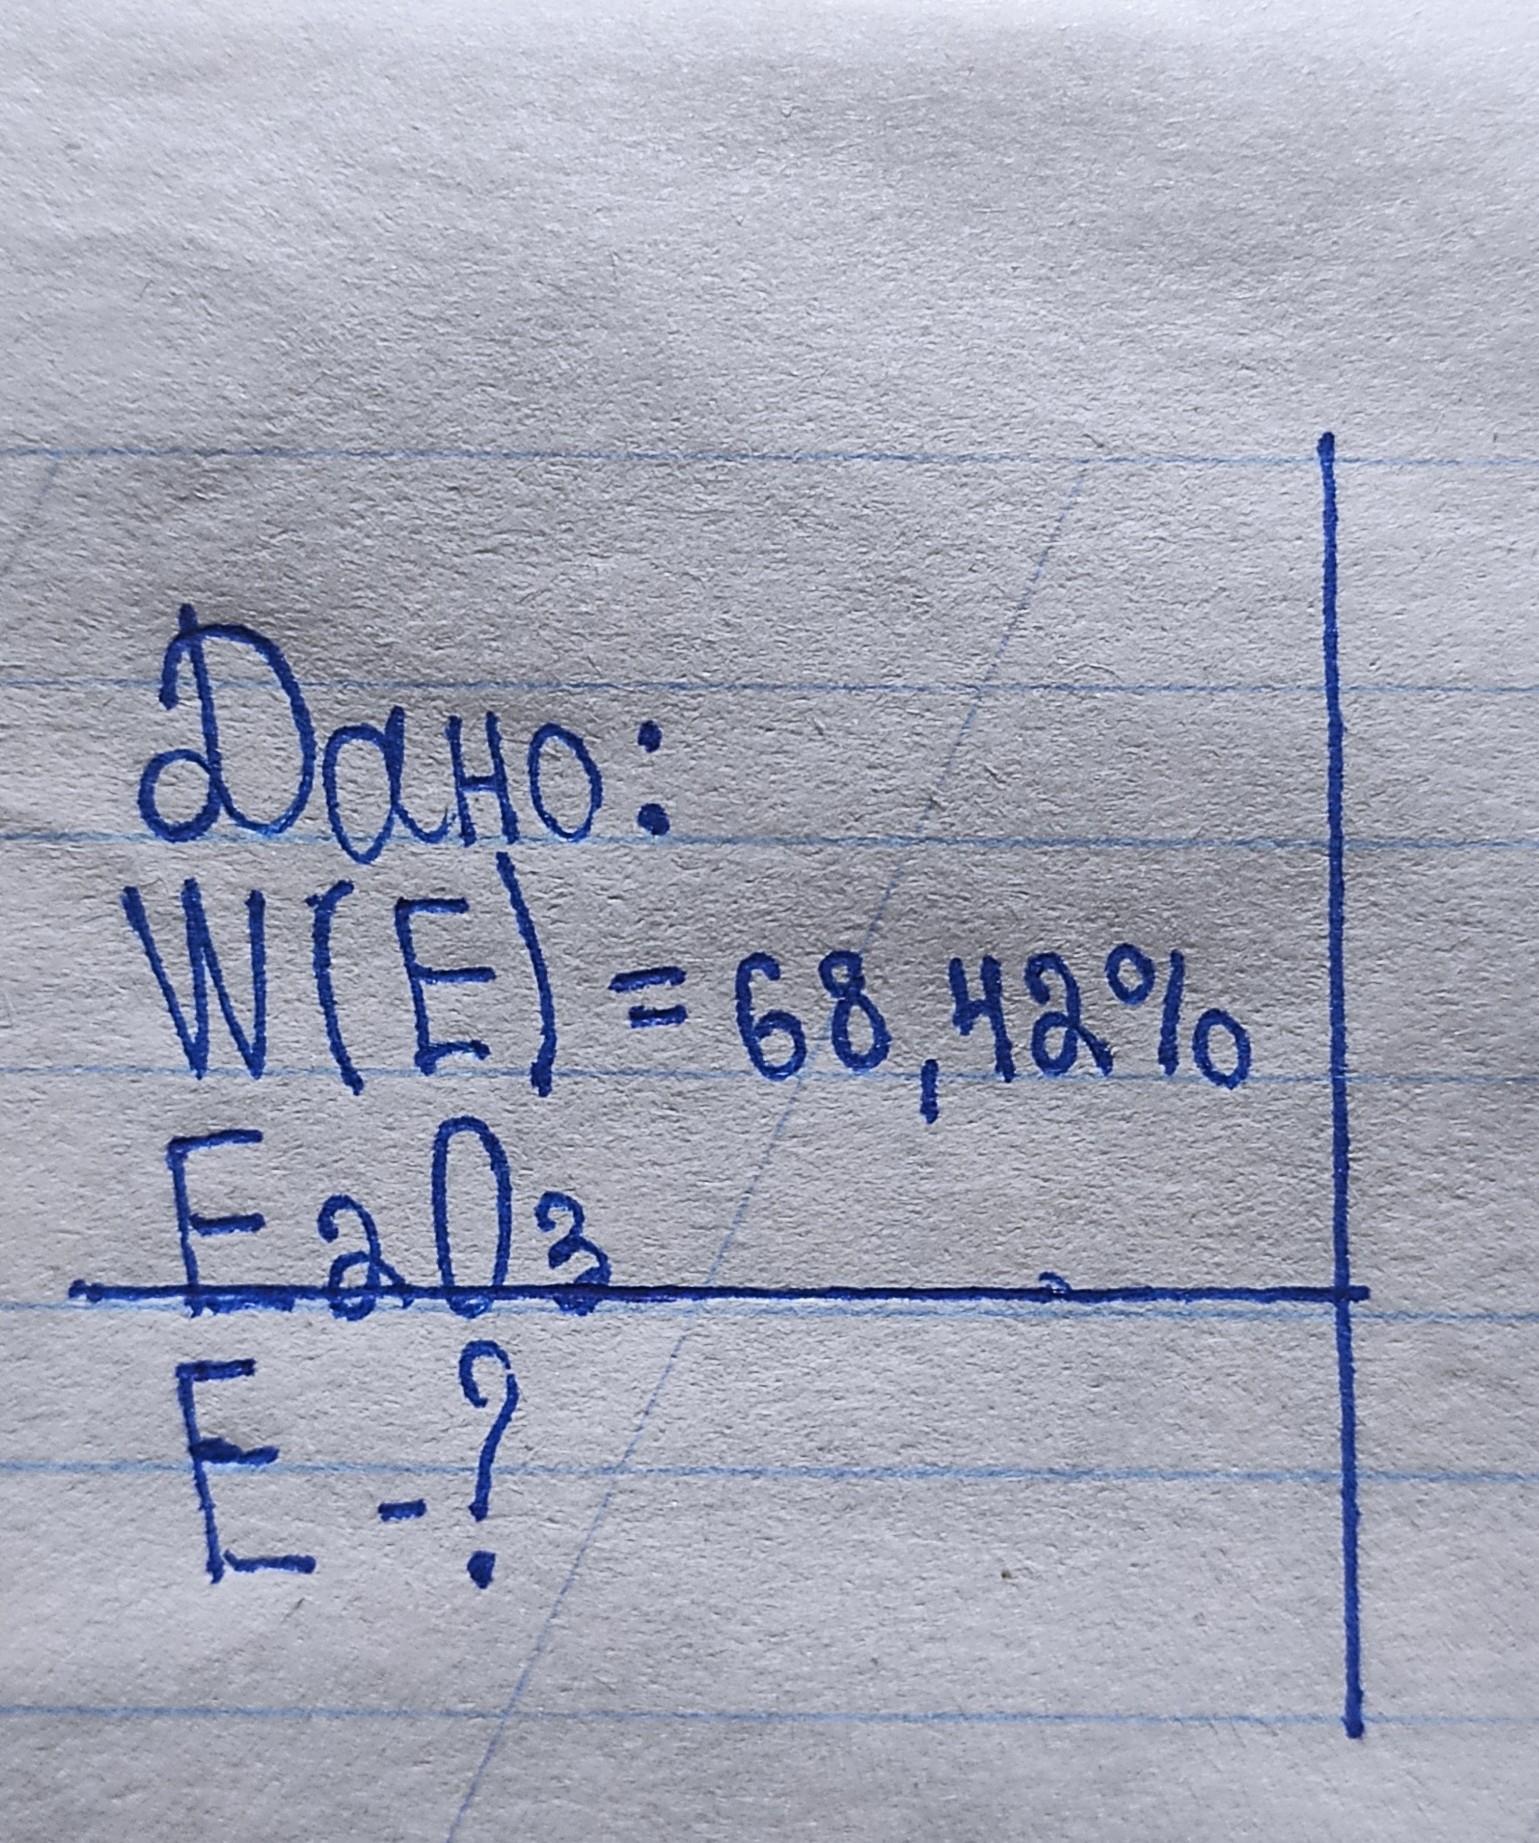 Дано:
W(E) = 68,42%
E2O3
E - ?